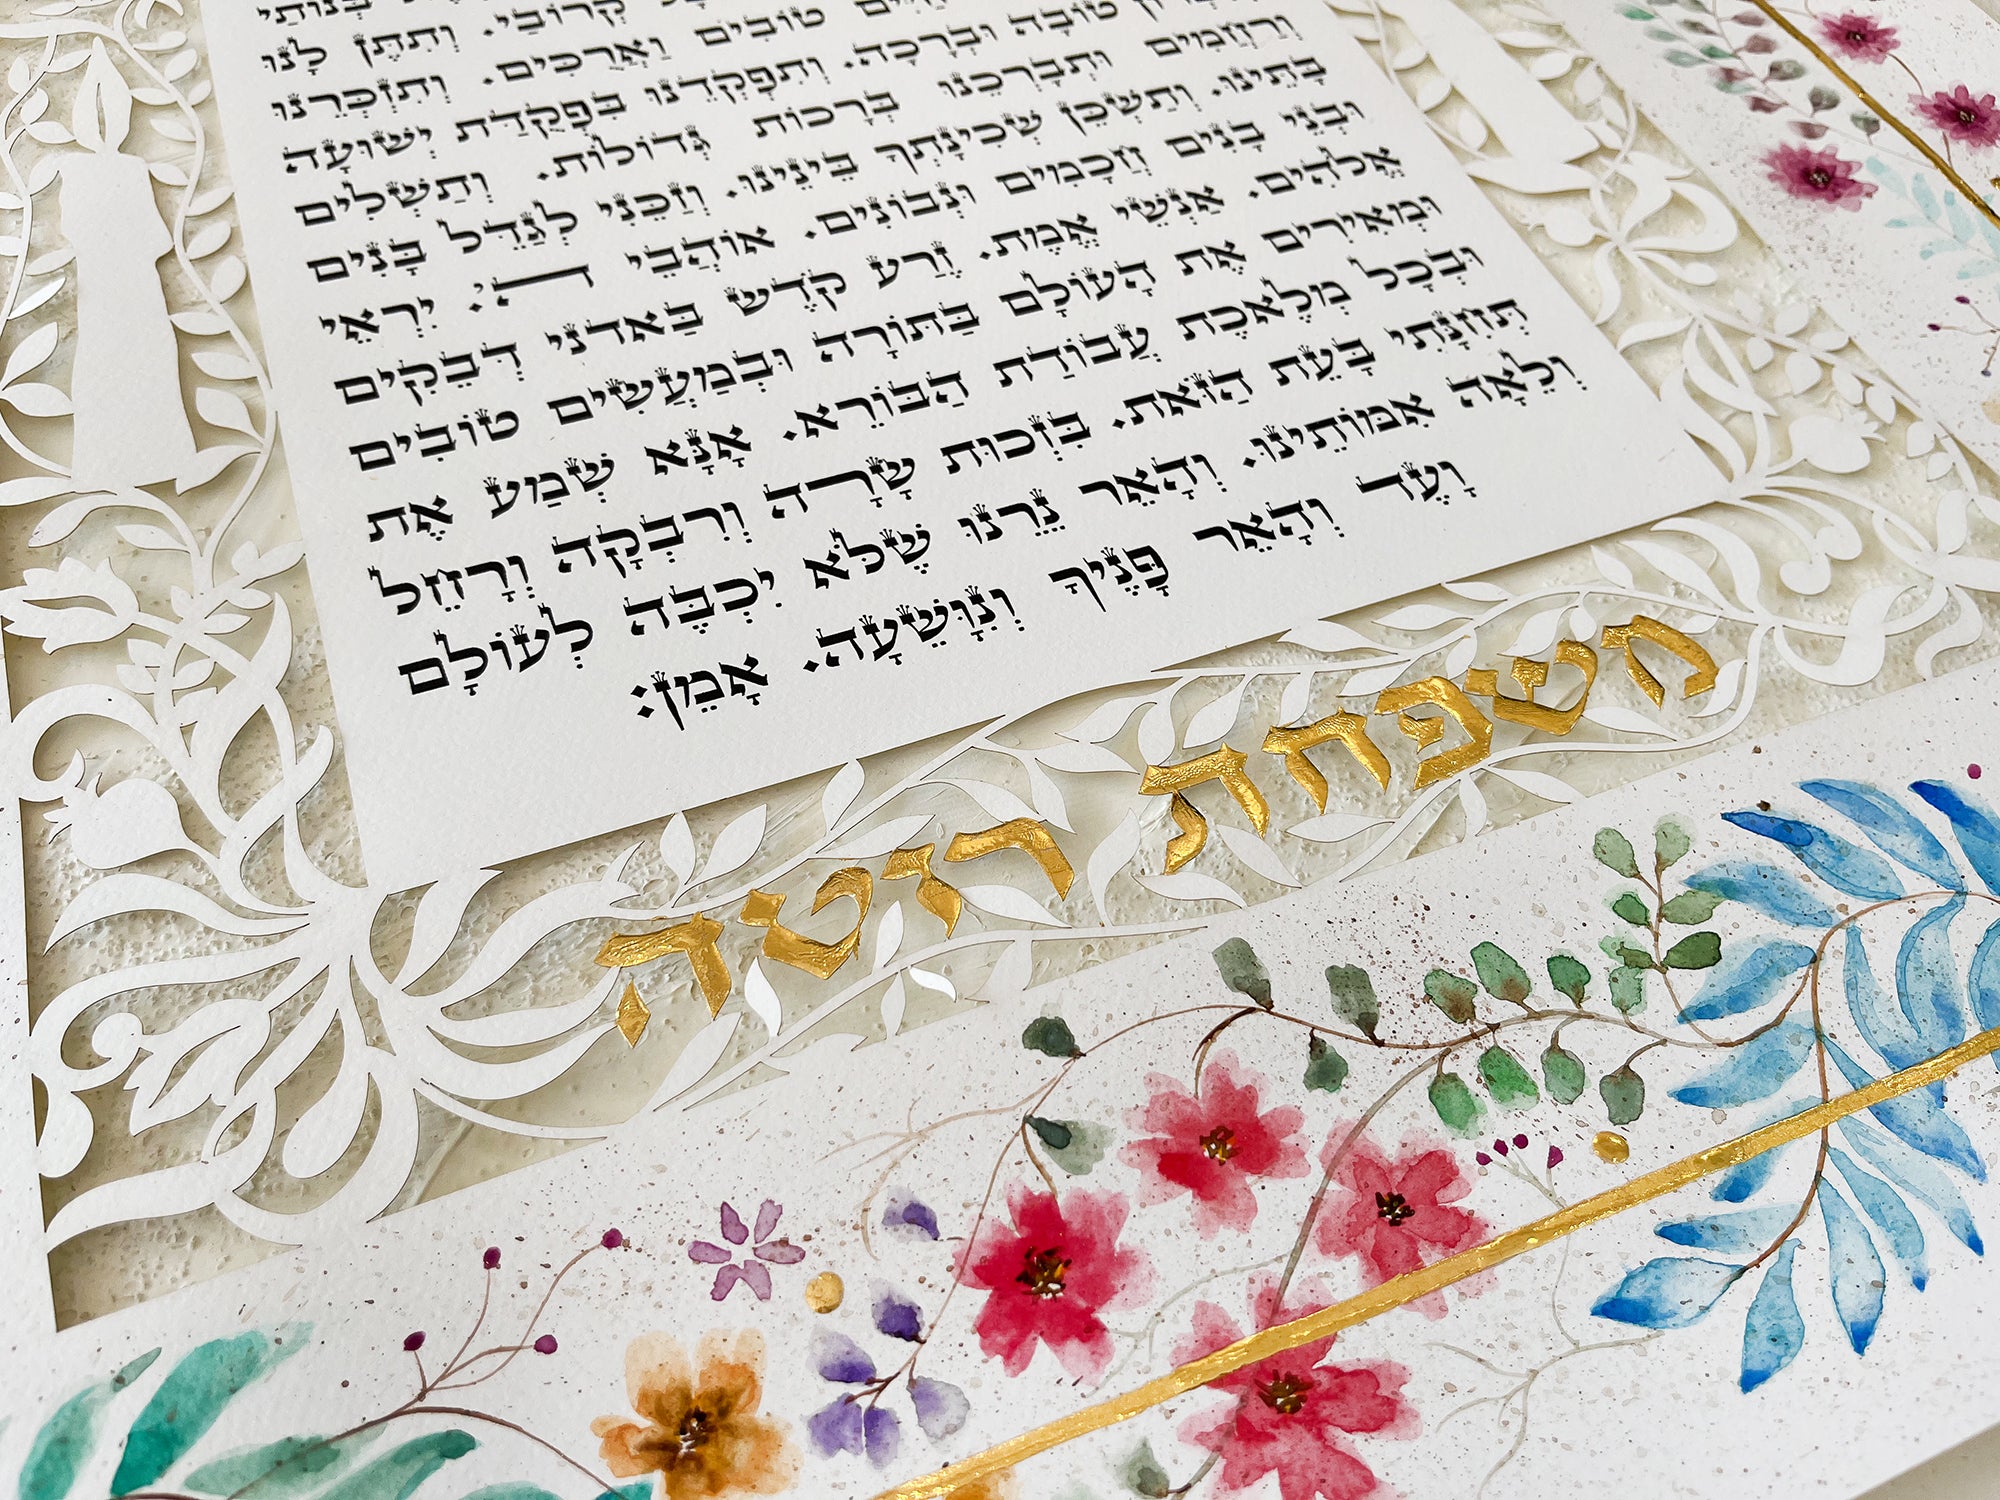 קְרוֹבַי. וְתִתֶּן לָנוּ
טוֹבִים וַאֲרֻכִּים. וְתִזְכְּרֵנוּ
טוֹבָה וּבְרָכָה. וְתִפְקְדֵנוּ בִּפְקֻדַּת יְשׁוּעָה
וְרַחֲמִים וּתְבָרְכֵנוּ בְּרָכוֹת גְּדוֹלוֹת. וְתַשְׁלִים
בָּתֵּינוּ. וְתַשְׁכֵּן שְׁכִינָתְךָ בֵּינֵינוּ. וְזַכֵּנִי לְגַדֵּל בָּנִים
וּבְנֵי בָנִים חֲכָמִים וּנְבוֹנִים. אוֹהֲבֵי ה'. יִרְאֵי
אֱלֹהִים. אַנְשֵׁי אֱמֶת. זֶרַע קֹדֶשׁ בַּאדֹנָי דְּבֵקִים
וּמְאִירִים אֶת הָעוֹלָם בַּתּוֹרָה וּבְמַעֲשִׂים טוֹבִים
וּבְכָל מְלֶאכֶת עֲבוֹדַת הַבּוֹרֵא. אָנָּא שְׁמַע אֶת
תְּחִנָּתִי בָּעֵת הַזֹּאת. בִּזְכוּת שָׂרָה וְרִבְקָה וְרָחֵל
וְלֵאָה אִמּוֹתֵינוּ. וְהָאֵר נֵרֵנוּ שֶׁלֹּא יִכְבֶּה לְעוֹלָם
וָעֶד וְהָאֵר פָּנֶיךָ וְנִוָּשֵׁעָה. אָמֵן:
משפחת רזטה